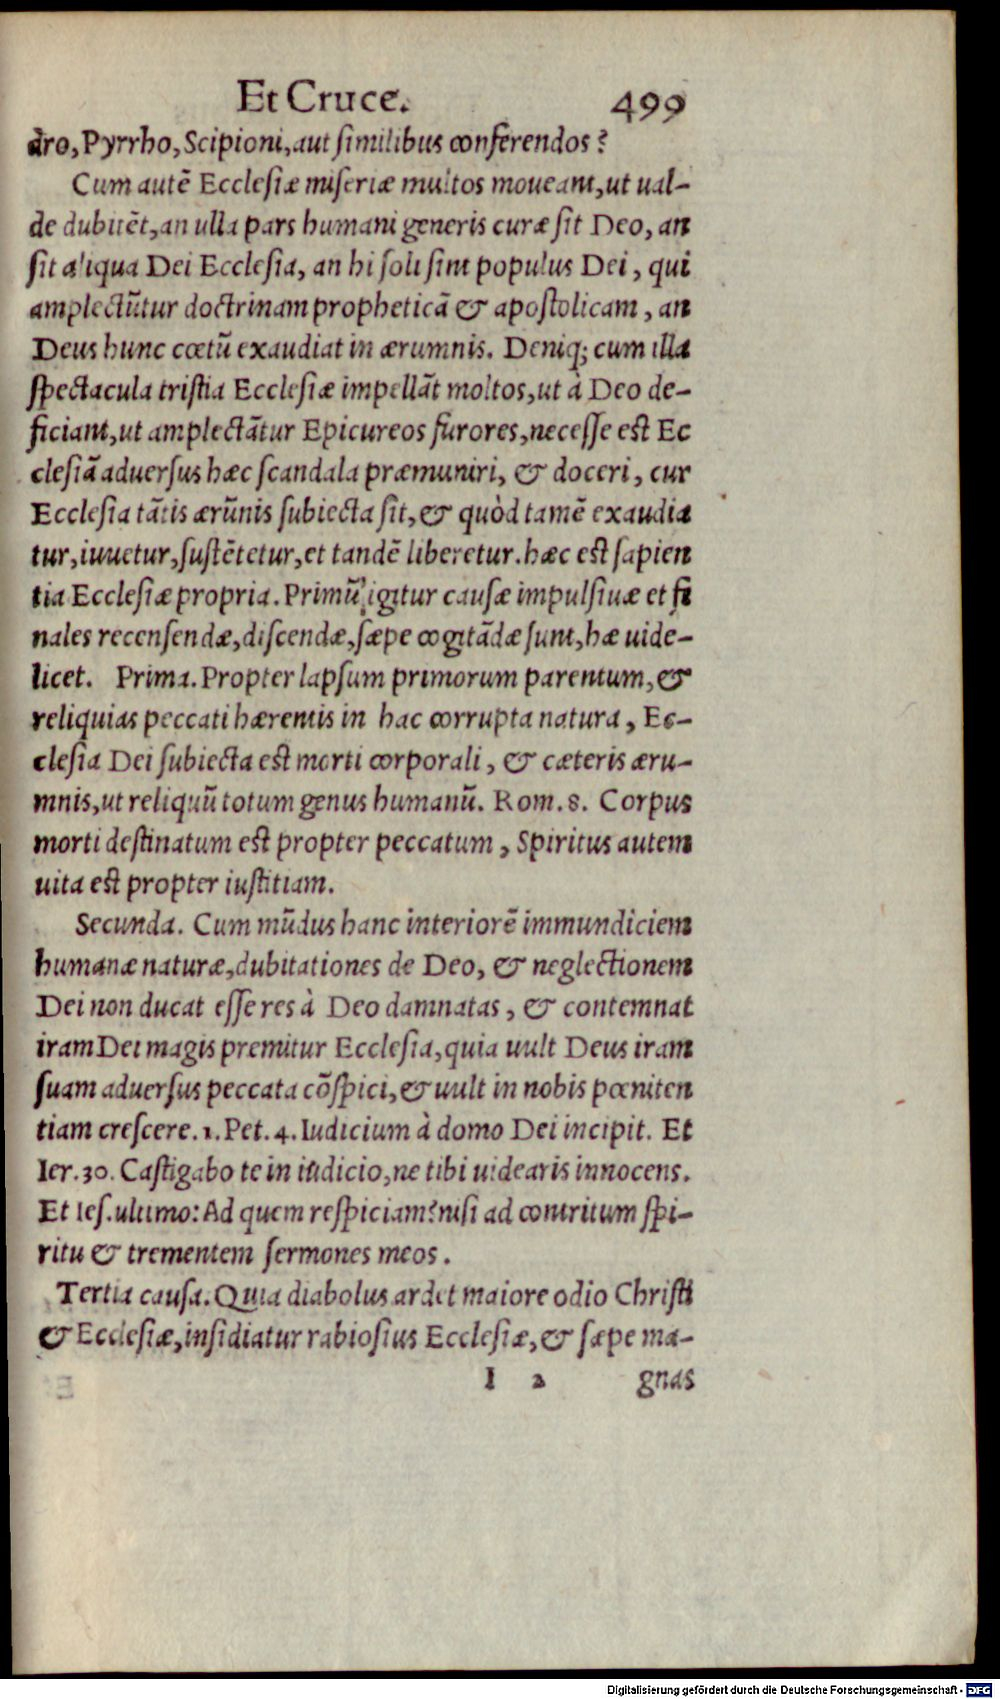 Et Cruce. 499
dro, Pyrrho, Scipioni, aut similibus conferendos?
Cum autē Ecclesiæ miseriæ multos moueant, ut ual-
de dubitēt, an ulla pars humani generis curæ sit Deo, an
sit aliqua Dei Ecclesia, an hi soli sint populus Dei, qui
amplectūtur doctrinam propheticā & apostolicam, an
Deus hunc cœtū exaudiat in ærumnis. Deniq; cum illa
spectacula tristia Ecclesiæ impellāt moltos, ut à Deo de-
ficiant, ut amplectātur Epicureos furores, necesse est Ec
clesiā aduersus hæc scandala præmuniri, & doceri, cur
Ecclesia tātis ærūnis subiecta sit, & quòd tamē exaudia
tur, iuuetur, sustētetur, et tandē liberetur. hæc est sapien
tia Ecclesiæ propria. Primū igitur causæ impulsiuæ et fi
nales recensendæ, discendæ, sæpe cogitādæ sunt, hæ uide-
licet. Prima. Propter lapsum primorum parentum, &
reliquias peccati hærentis in hac corrupta natura, Ec-
clesia Dei subiecta est morti corporali, & cæteris æru-
mnis, ut reliquū totum genus humanū. Rom. 8. Corpus
morti destinatum est propter peccatum, Spiritus autem
uita est propter iustitiam.
Secunda. Cum mūdus hanc interiorē immundiciem
humanæ naturæ, dubitationes de Deo, & neglectionem
Dei non ducat esse res à Deo damnatas, & contemnat
iram Dei magis premitur Ecclesia, quia uult Deus iram
suam aduersus peccata cōspici, & uult in nobis pœniten
tiam crescere. 1. Pet. 4. Iudicium à domo Dei incipit. Et
Ier. 30. Castigabo te in iudicio, ne tibi uidearis innocens.
Et Ies. ultimo: Ad quem respiciam? nisi ad contritum spi-
ritu & trementem sermones meos.
Tertia causa. Quia diabolus ardet maiore odio Christi
& Ecclesiæ, insidiatur rabiosius Ecclesiæ, & sæpe ma-
I 2 gnas
Digitalisierung gefördert durch die Deutsche Forschungsgemeinschaft - DFG